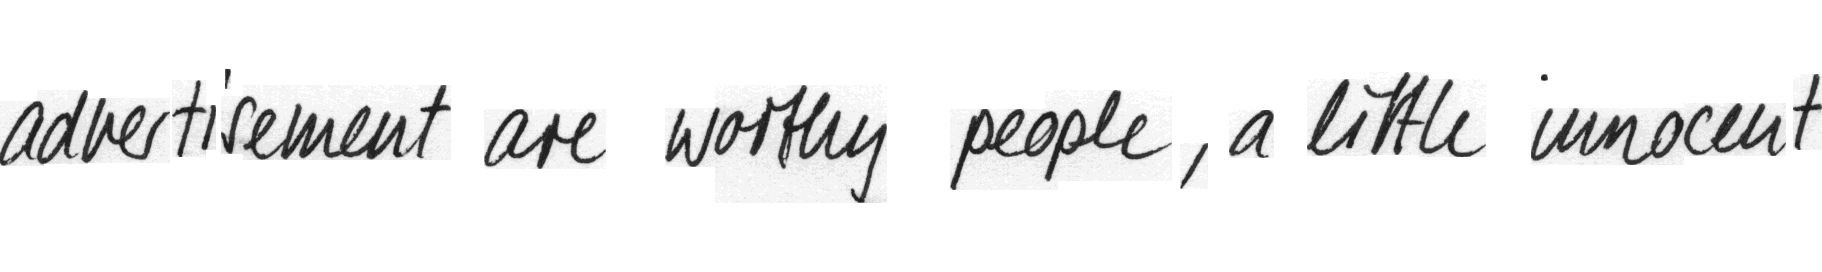 advertisement are worthy people, a little innocent